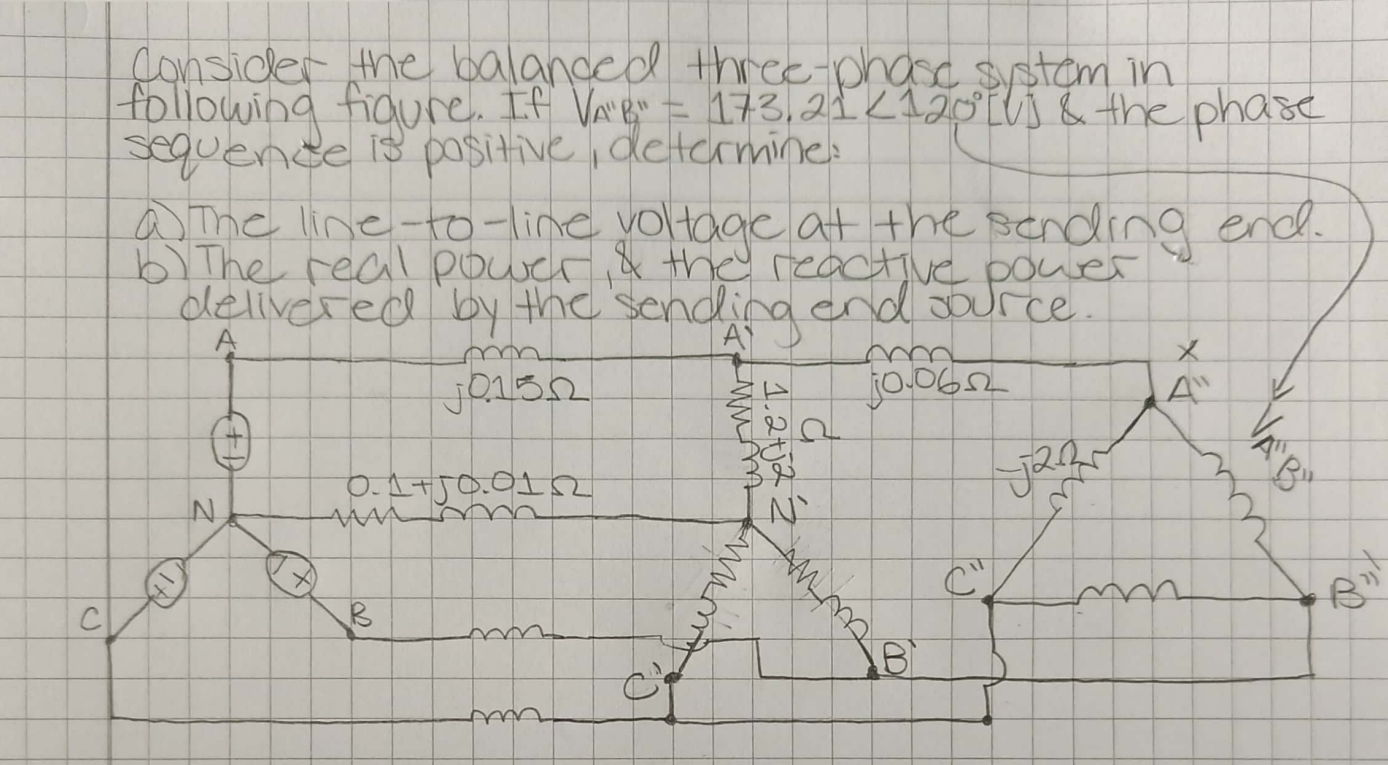 Consider the balanced three-phase system in
following figure. If VA"B" = 173.21<120°[V] & the phase
sequence is positive, determine:
a) The line-to-line voltage at the sending end.
b) The real power, & the reactive power
delivered by the sending end source.
A
A'
x
j0.15Ω
j0.06Ω
A"
1.2+j2 Ω
-j2Ω
A"B"
0.1+j0.01Ω
N
N'
C"
B"
C
B
B'
C'